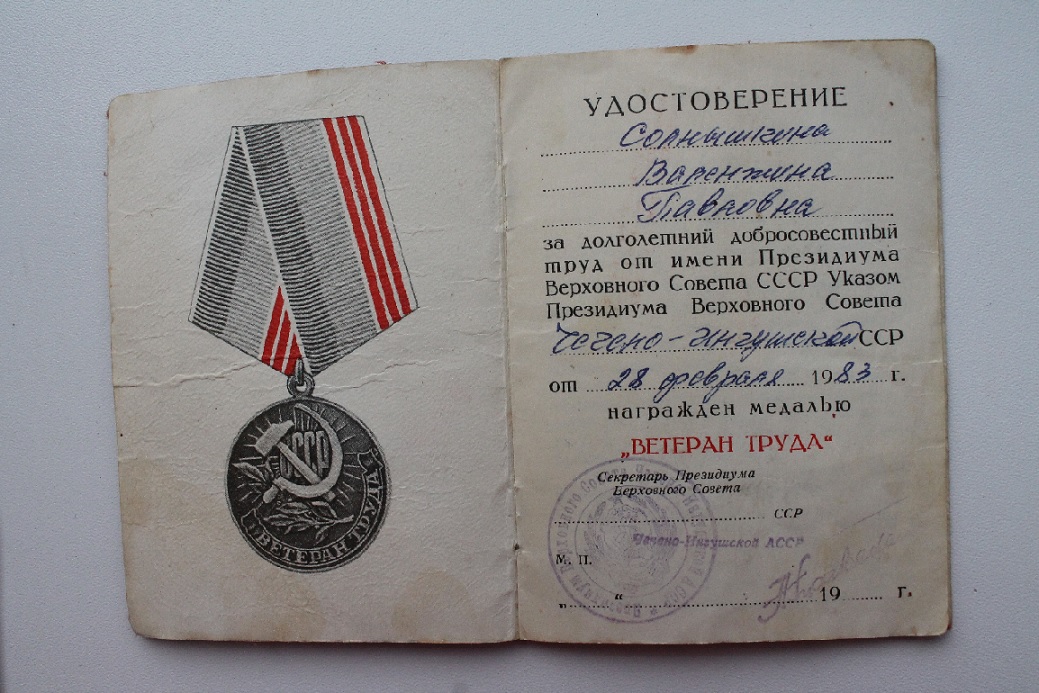 СССР
ВЕТЕРАН ТРУДА
УДОСТОВЕРЕНИЕ
Солнышкина
Валентина
Павловна
за долголетний добросовестный
труд от имени Президиума
Верховного Совета СССР Указом
Президиума Верховного Совета
Чечено-Ингушской ССР
от 28 февраля 1983 г.
награжден медалью
„ВЕТЕРАН ТРУДА“
Секретарь Президиума
Верховного Совета
ССР
Чечено-Ингушской АССР
М. П.
„ “ 19 г.